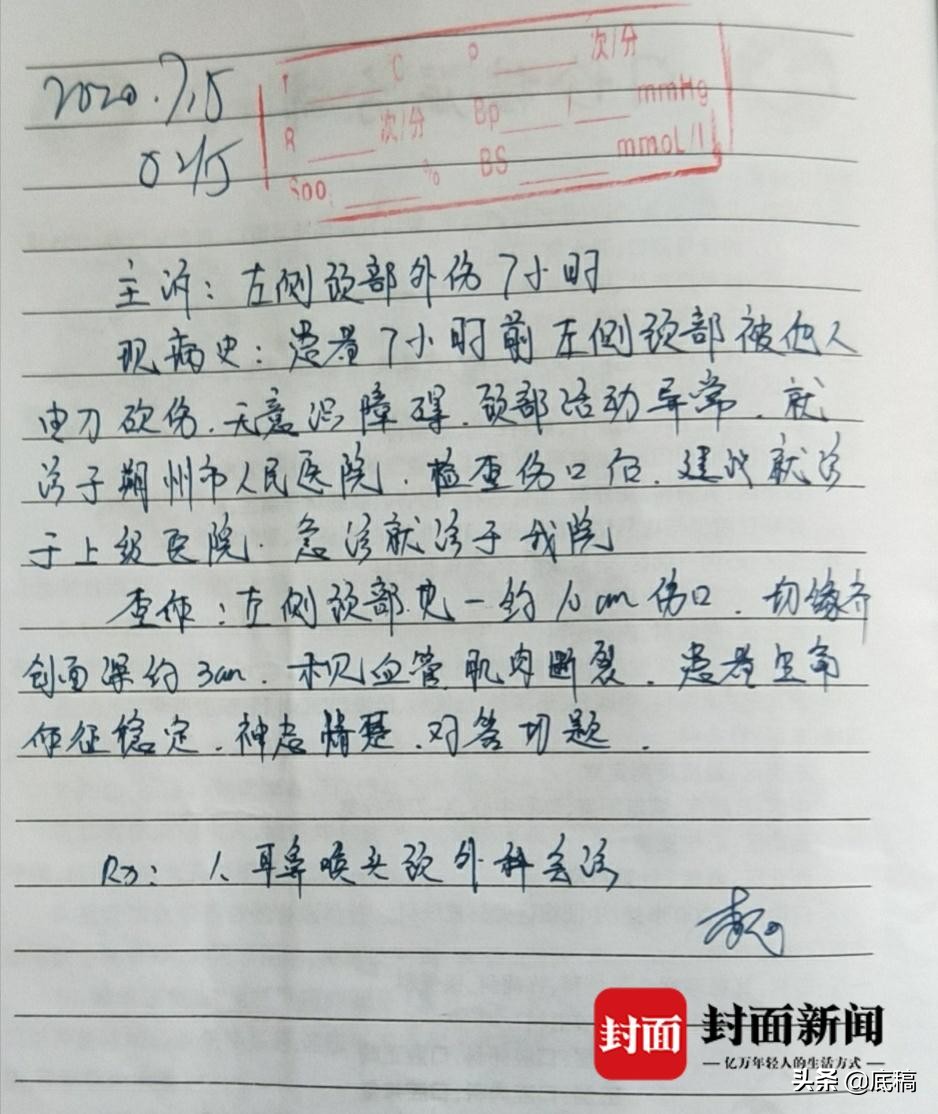 2020.7.15
0215
T ____ C P ____ 次/分
R ____ 次/分 Bp ____/____ mmHg
SpO₂ ____ % BS ____ mmoL/l
主诉：左侧颈部外伤7小时
现病史：患者7小时前左侧颈部被他人
砍伤.无意识障碍.颈部活动异常.就
诊于朔州市人民医院.检查伤口后.建议就诊
于上级医院.急诊就诊于我院
查体：左侧颈部见一约10cm伤口.切缘齐
创面深约3cm.肌肉断裂.患者生命
体征稳定.神志清楚.对答切题.
Rx：1、耳鼻喉头颈外科会诊
封面
封面新闻
—亿万年轻人的生活方式—
头条 @底稿